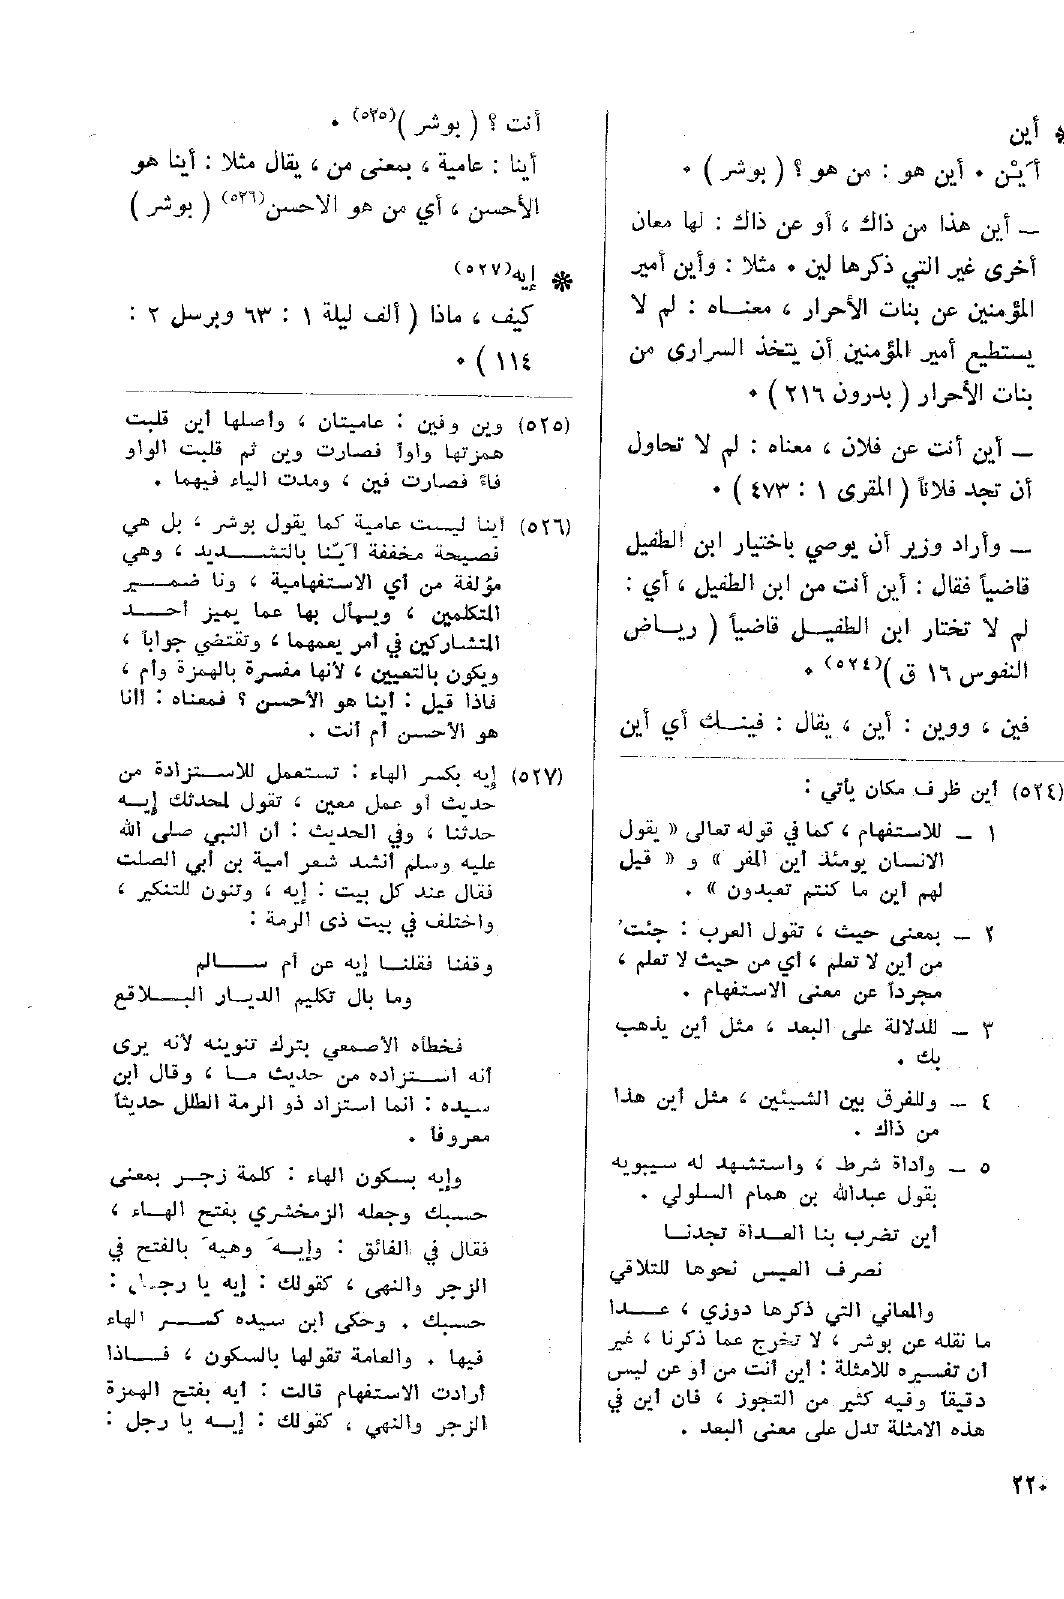 * أين
أَيْن . أين هو : من هو ؟ ( بوشر ) .
ــ أين هذا من ذاك ، أو عن ذاك : لها معان
أخرى غير التي ذكرها لين . مثلا : وأين أمير
المؤمنين عن بنات الأحرار ، معنــاه : لم لا
يستطيع أمير المؤمنين أن يتخذ السراري من
بنات الأحرار ( بدرون ٢١٦ ) .
ــ أين أنت عن فلان ، معناه : لم لا تحاول
أن تجد فلاناً ( المقرى ١ : ٤٧٣ ) .
ــ وأراد وزير أن يوصي باختيار ابن الطفيل
قاضياً فقال : أين أنت من ابن الطفيل ، أي :
لم لا تختار ابن الطفيــل قاضياً ( ريــاض
النفوس ١٦ ق )(٥٢٤) .
فين ، ووين : أين ، يقال : فينــك أي أين
(٥٢٤) أين ظرف مكان يأتي :
١ ــ للاستفهام ، كما في قوله تعالى « يقول
الانسان يومئذ أين المفر » و « قيل
لهم أين ما كنتم تعبدون » .
٢ ــ بمعنى حيث ، تقول العرب : جئت'
من أين لا تعلم ، أي من حيث لا تعلم ،
مجرداً عن معنى الاستفهام .
٣ ــ للدلالة على البعد ، مثل أين يذهب
بك .
٤ ــ وللفرق بين الشيئين ، مثل أين هذا
من ذاك .
٥ ــ وأداة شرط ، واستشهد له سيبويه
بقول عبدالله بن همام السلولي .
أين تضرب بنا العــداة تجدنــا
نصرف العيس نحوها للتلاقي
والمعاني التي ذكرها دوزي ، عــدا
ما نقله عن بوشر ، لا تخرج عما ذكرنا ، غير
أن تفسيره للامثلة : أين أنت من أو عن ليس
دقيقاً وفيه كثير من التجوز ، فان أين في
هذه الامثلة تدل على معنى البعد .
أنت ؟ ( بوشر )(٥٢٥) .
أينا : عامية ، بمعنى من ، يقال مثلا : أينا هو
الأحسن ، أي من هو الاحسن(٥٢٦) ( بوشر )
* إيه(٥٢٧)
كيف ، ماذا ( ألف ليلة ١ : ٦٣ وبرسل ٢ :
١١٤ ) .
(٥٢٥) وين وفين : عاميتان ، وأصلها أين قلبت
همزتها واوآ فصارت وين ثم قلبت الواو
فاءً فصارت فين ، ومدت الياء فيهما .
(٥٢٦) أينا ليست عامية كما يقول بوشر ، بل هي
فصيحة مخففة أيّنا بالتشــديد ، وهي
مؤلفة من أي الاستفهامية ، ونا ضمــير
المتكلمين ، ويسأل بها عما يميز أحــد
المتشاركين في أمر يعمهما ، وتقتضي جواباً ،
ويكون بالتعيين ، لأنها مفسرة بالهمزة وأم ،
فاذا قيل : أينا هو الأحسن ؟ فمعناه : أانا
هو الأحسن أم أنت .
(٥٢٧) إيه بكسر الهاء : تستعمل للاستزادة من
حديث أو عمل معين ، تقول لمحدثك إيــه
حدثنا ، وفي الحديث : أن النبي صلى الله
عليه وسلم أنشد شعر أمية بن أبي الصلت
فقال عند كل بيت : إيه ، وتنون للتنكير ،
واختلف في بيت ذي الرمة :
وقفنا فقلنــا إيه عن أم ســالم
وما بال تكليم الديــار البــلاقع
فخطأه الاصمعي بترك تنوينه لانه يرى
أنه استزاده من حديث مــا ، وقال ابن
سيده : انما استزاد ذو الرمة الطلل حديثاً
معروفاً .
وإيه بسكون الهاء : كلمة زجــر بمعنى
حسبك وجعله الزمخشري بفتح الهــاء ،
فقال في الفائق : وإيــهَ وهيهَ بالفتح في
الزجر والنهي ، كقولك : إيه يا رجل :
حسبك . وحكى ابن سيده كســر الهاء
فيها . والعامة تقولها بالسكون ، فــاذا
أرادت الاستفهام قالت : أيه بفتح الهمزة
الزجر والنهي ، كقولك : إيــه يا رجل :
٢٢٠